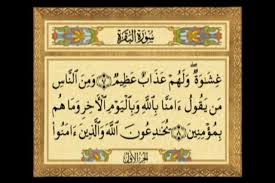 سُورَةُ البَقَرَةِ
غِشَٰوَةٌۖ وَلَهُمْ عَذَابٌ عَظِيمٌ ٧ وَمِنَ النَّاسِ
مَن يَقُولُ ءَامَنَّا بِاللَّهِ وَبِالْيَوْمِ الْأٓخِرِ وَمَا هُم
بِمُؤْمِنِينَ ٨ يُخَٰدِعُونَ اللَّهَ وَالَّذِينَ ءَامَنُوا
الجُزءُ الأوّلُ